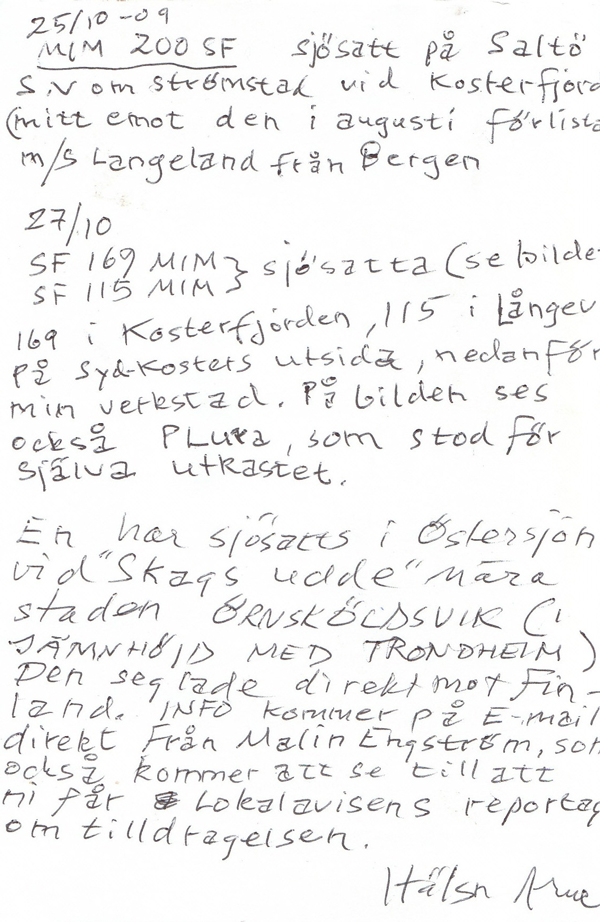 25/10-09
MIM 200 SF sjösatt på Saltö
S.V om strömstad vid Kosterfjörd
(mitt emot den i augusti förlista
m/s Langeland från Bergen
27/10
SF 169 MIM } sjösatta (se bilde
SF 115 MIM }
169 i Kosterfjörden, 115 i Långev
På Syd-Kosters utsida, nedanför
min verkstad. På bilden ses
också PLura, som stod för
själva utkastet.
En har sjösatts i Östersjön
vid "Skags udde" nära
staden ÖRNSKÖLDSVIK (i
JÄMNHÖJD MED TRONDHEIM)
Den seglade direkt mot Fin-
land. INFO kommer på E-mail
direkt Från Malin Engström, som
också kommer att se till att
ni får Lokalavisens reportag
om tilldragelsen.
Hälsn Arne